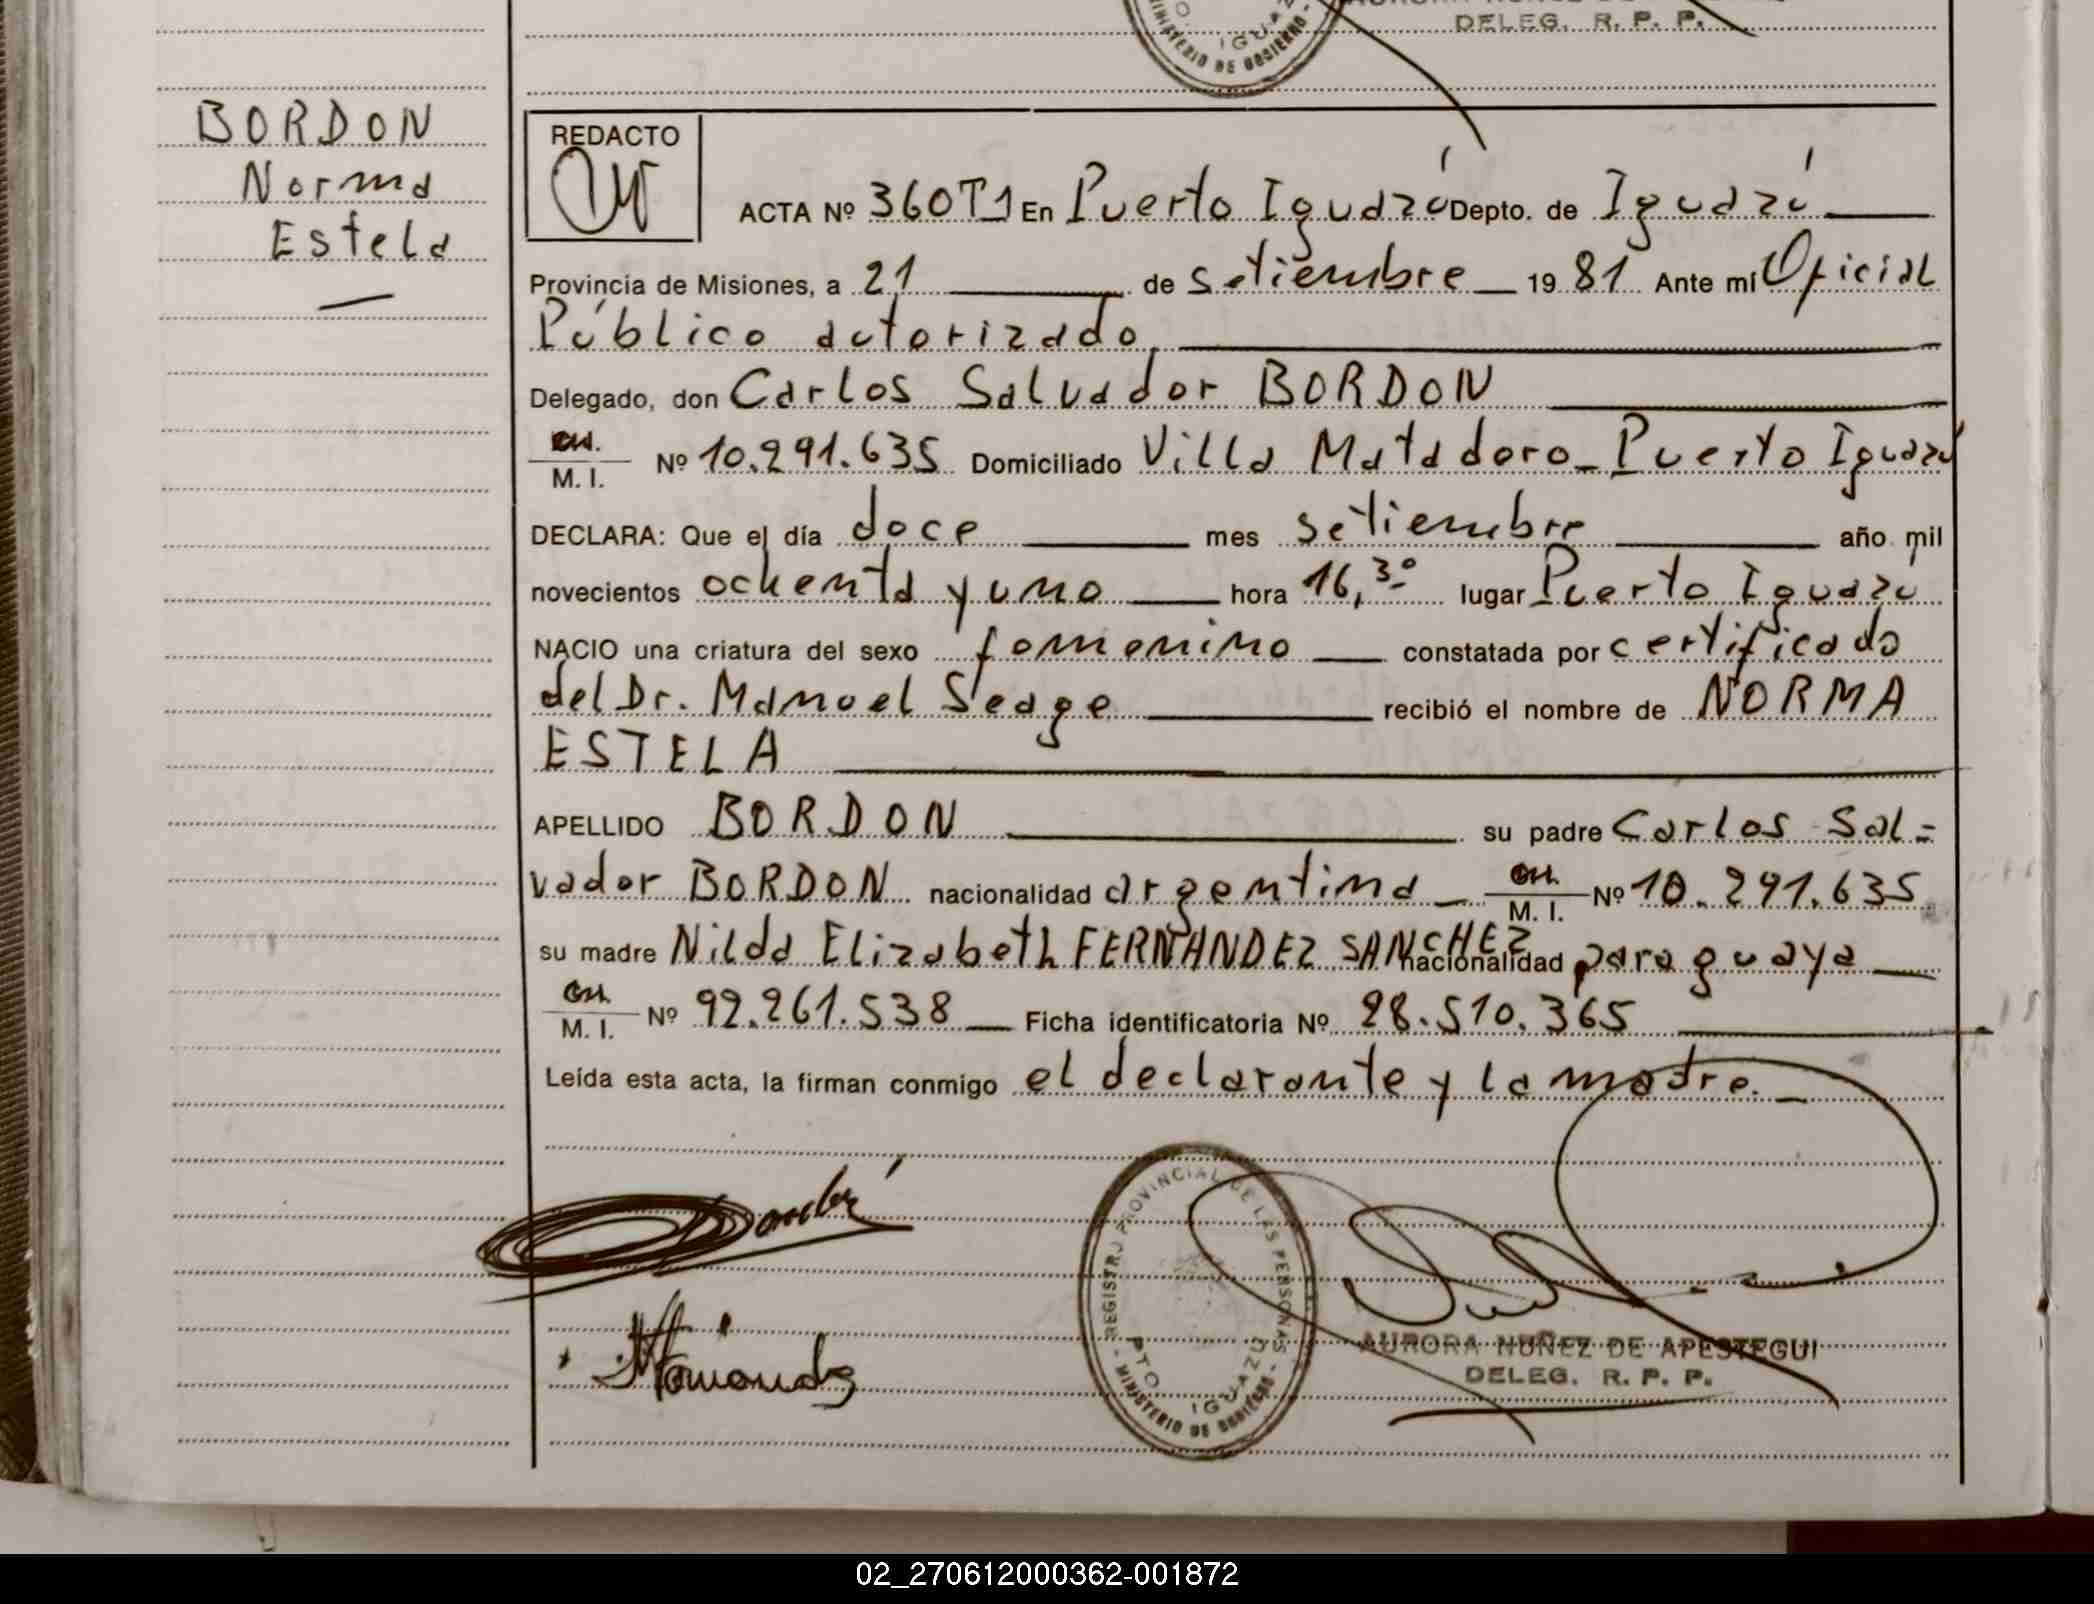 DELEG. R. P. P.
IGUAZ
MINISTERIO DE GOBIERNO
BORDON
Norma
Estela
REDACTO
ACTA Nº 360T1 En Puerto Iguazú Depto. de Iguazú
Provincia de Misiones, a 21 de setiembre 1981 Ante mí Oficial
Público autorizado
Delegado, don Carlos Salvador BORDON
M. I. Nº 10.291.635 Domiciliado Villa Matadero_Puerto Iguazú
DECLARA: Que el día doce mes setiembre año mil
novecientos ochenta y uno hora 16,30 lugar Puerto Iguazú
NACIO una criatura del sexo femenino constatada por certificado
del Dr. Manuel Seage recibió el nombre de NORMA
ESTELA
APELLIDO BORDON su padre Carlos Sal=
vador BORDON nacionalidad argentina M. I. Nº 10.291.635
su madre Nilda Elizabeth FERNANDEZ SANCHEZ nacionalidad paraguaya
M. I. Nº 92.261.538 Ficha identificatoria Nº 28.510.365
Leída esta acta, la firman conmigo el declarante y la madre.
REGISTRO PROVINCIAL DE LAS PERSONAS
PTO. IGUAZU
- MINISTERIO DE GOBIERNO -
AURORA NUÑEZ DE APESTEGUI
DELEG. R. P. P.
02_270612000362-001872